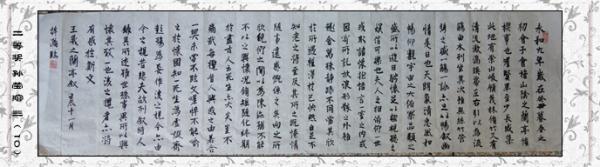 永和九年歲在癸丑暮春之
初會于會稽山陰之蘭亭脩
禊事也群賢畢至少長咸集
此地有崇山峻領茂林脩竹又有
清流激湍暎帶左右引以為流
觴曲水列坐其次雖無絲竹管
弦之盛一觴一詠亦足以暢敘幽
情是日也天朗氣清惠風和
暢仰觀宇宙之大俯察品類之
盛所以遊目騁懷足以極視聽之
娛信可樂也夫人之相與俯仰一世
或取諸懷抱悟言一室之內或
因寄所託放浪形骸之外雖
趣舍萬殊靜躁不同當其欣
於所遇暫得於己快然自足不
知老之將至及其所之既倦情
隨事遷感慨係之矣向之所
欣俛仰之間以為陳迹猶不能
不以之興懷況脩短隨化終期
於盡古人云死生亦大矣豈不
痛哉每攬昔人興感之由若合
一契未嘗不臨文嗟悼不能喻
之於懷固知一死生為虛誕齊
彭殤為妄作後之視今亦由
今之視昔悲夫故列敘時人
錄其所述雖世殊事異所以興
懷其致一也後之攬者亦將
有感於斯文
王羲之蘭亭敘 十一月
二等奖